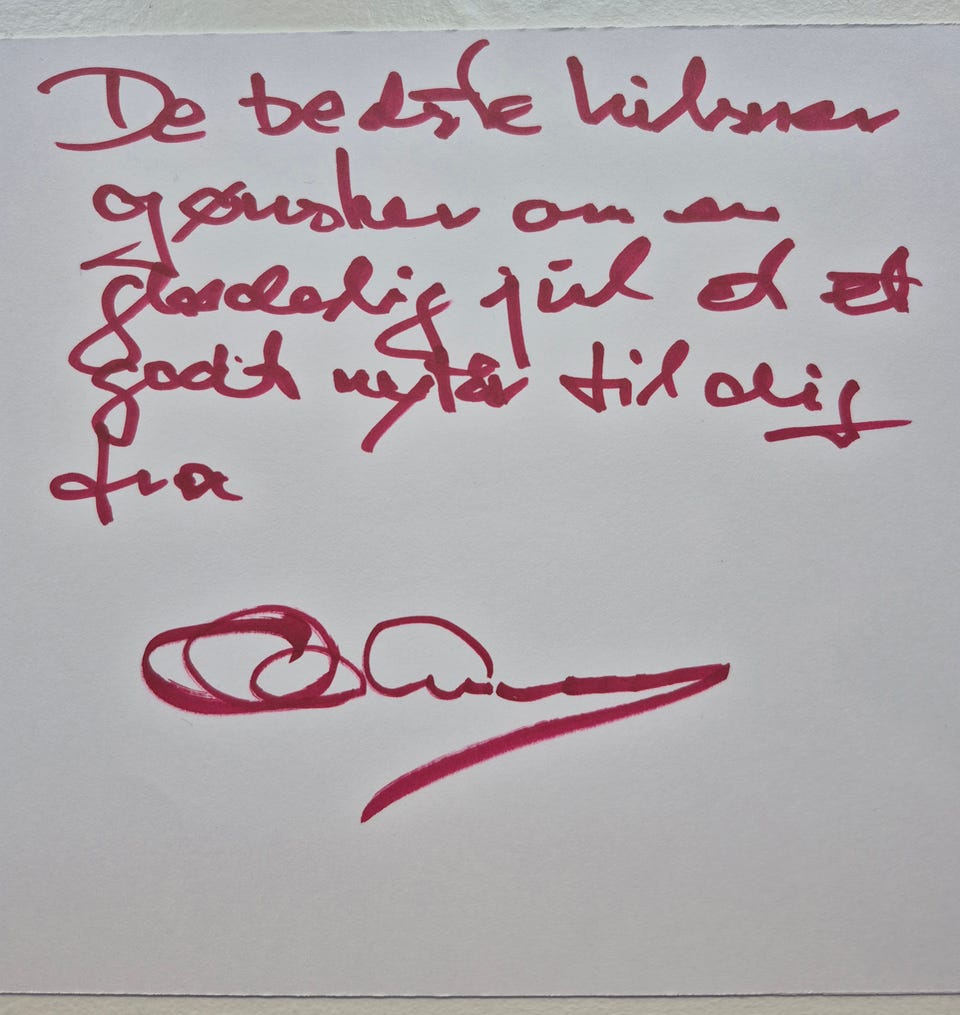 De bedste hilsner
og ønsker om en
glædelig jul og et
godt nytår til dig
fra